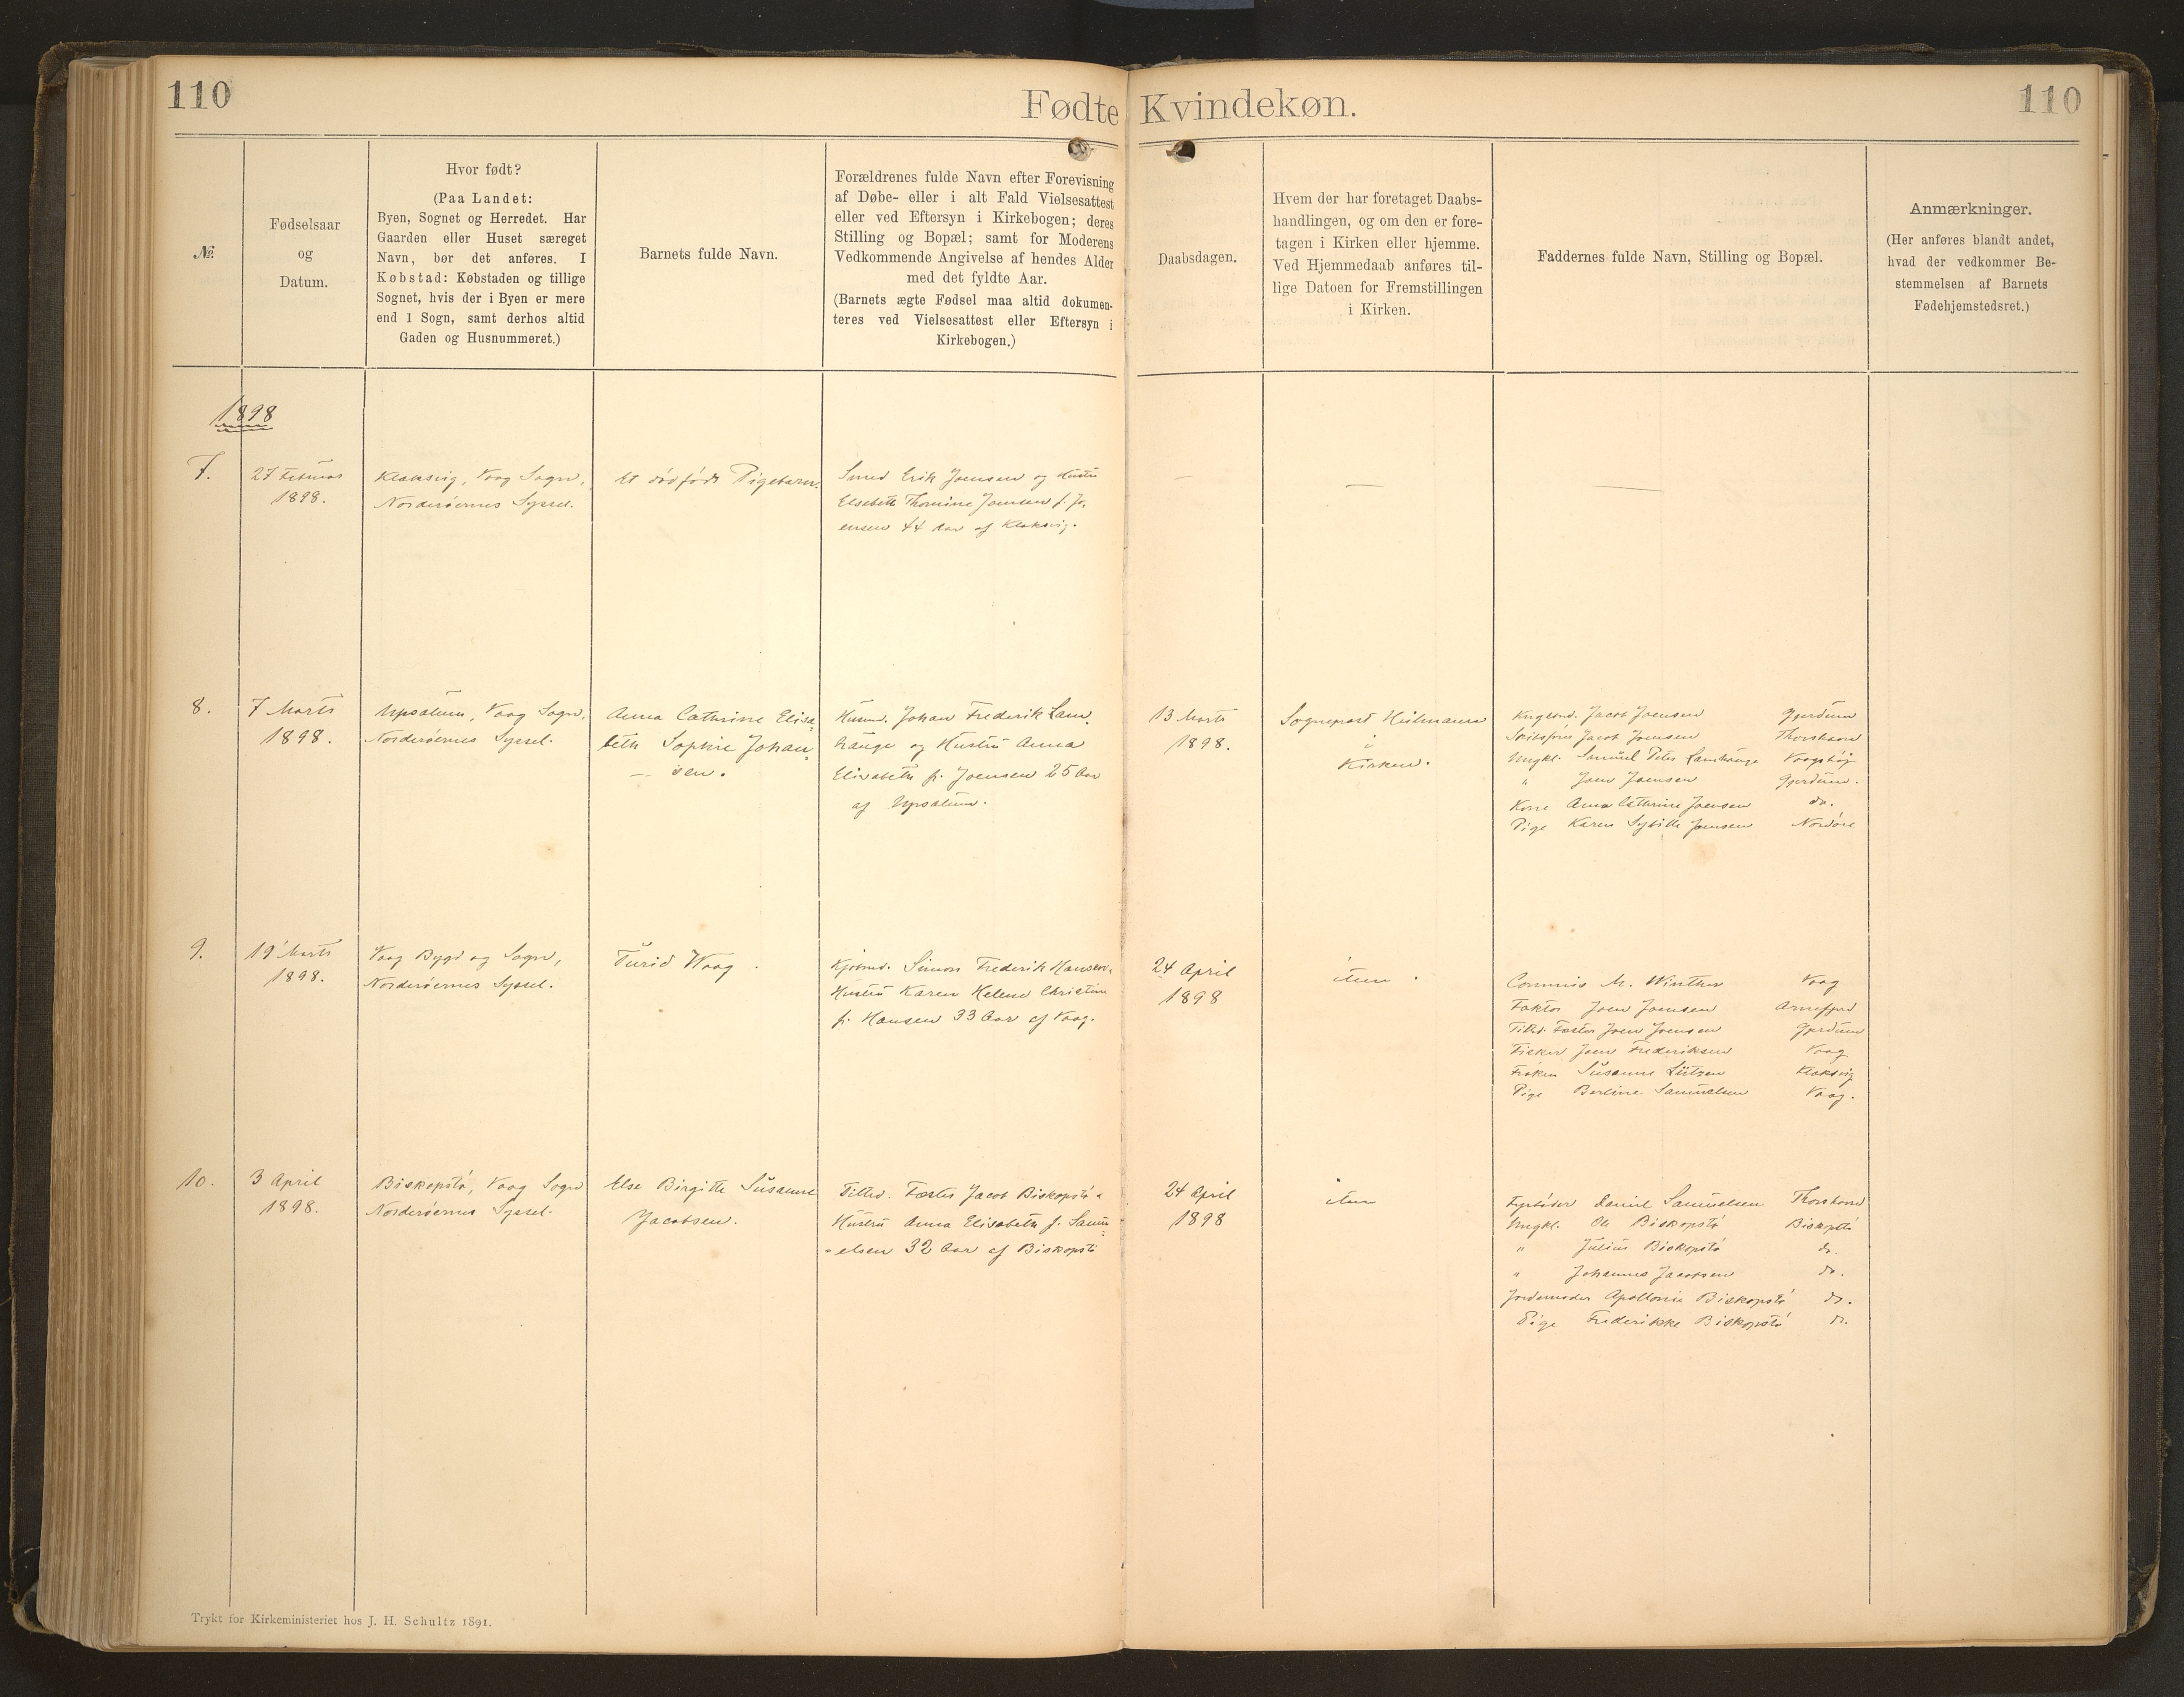 110
Fødte Kvindekøn.
110
№.
Fødselsaar
og
Datum.
Hvor født?
(Paa Landet:
Byen, Sognet og Herredet. Har
Gaarden eller Huset særeget
Navn, bør det anføres. I
Købstad: Købstaden og tillige
Sognet, hvis der i Byen er mere
end 1 Sogn, samt derhos altid
Gaden og Husnummeret.)
Barnets fulde Navn.
Forældrenes fulde Navn efter Forevisning
af Døbe- eller i alt Fald Vielsesattest
eller ved Eftersyn i Kirkebogen; deres
Stilling og Bopæl; samt for Moderens
Vedkommende Angivelse af hendes Alder
med det fyldte Aar.
(Barnets ægte Fødsel maa altid dokumen-
teres ved Vielsesattest eller Eftersyn i
Kirkebogen.)
Daabsdagen.
Hvem der har foretaget Daabs-
handlingen, og om den er fore-
tagen i Kirken eller hjemme.
Ved Hjemmedaab anføres til-
lige Datoen for Fremstillingen
i Kirken.
Faddernes fulde Navn, Stilling og Bopæl.
Anmærkninger.
(Her anføres blandt andet,
hvad der vedkommer Be-
stemmelsen af Barnets
Fødehjemstedsret.)
1898
7.
27 Februar
1898.
Klaksvig, Vaag Sogn,
Norderøernes Syssel.
Et dødfødt Pigebarn.
Smed Erik Joensen og Hustru
Elsebeth Thomine Joensen f. Jo,
ensen 44 Aar af Klaksvig.
—
—
—
8.
7 Marts
1898.
Upsalum, Vaag Sogn,
Norderøernes Syssel.
Anna Cathrine Elisa=
beth Sophie Johan=
— sen.
Husmd. Johan Frederik Lam,
hauge og Hustru Anna
Elisabeth f. Joensen 25 Aar
af Upsalum.
13 Marts
1898.
Sognepræst Heilmann
i
Kirken.
Kngsbd. Jacob Joensen Gjerdum
Skibsfører Jacob Joensen Thorshavn
Ungkl. Samuel Peter Lamhauge Vaagshøj
" Joen Joensen Gjerdum.
Kone Anna Cathrine Joensen do.
Pige Karen Sybille Joensen Nordøre
9.
19 Marts
1898.
Vaag Bygd og Sogn,
Norderøernes Syssel.
Turid Waag.
Kjøbmd. Simon Frederik Hansen,
Hustru Karen Helene Christine
f. Hansen 33 Aar af Vaag.
24 April
1898
item.
Commis M. Winther Vaag
Faktor Joen Joensen Arnefjord
Tilhd. Fæster Joen Joensen Gjerdum
Fisker Joen Frederiksen Vaag
Frøken Susanne Lützen Klaksvig
Pige Berline Samuelsen Vaag.
10.
3 April
1898.
Biskopstø, Vaag Sogn
Norderøernes Syssel.
Else Birgitte Susanne
Jacobsen.
Tilhd. Fæster Jacob Biskopstø
Hustru Anna Elisabeth f. Samu=
=elsen 32 Aar af Biskopstø
24 April
1898
item
Fyrbøder Daniel Samuelsen Thorshavn
Ungkl. Ole Biskopstø Biskopstø
" Julius Biskopstø do.
" Johannes Jacobsen do.
Jordemoder Apollonia Biskopstø do.
Pige Frederikke Biskopstø do.
Trykt for Kirkeministeriet hos J. H. Schultz 1891.